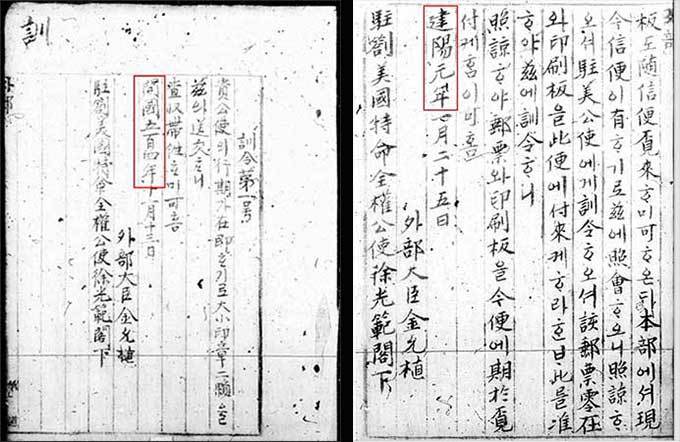 訓
訓令第一号
貴公使의行期가在即ᄒᆞ기로大小印章二顆을
玆의送交ᄒᆞ니
查収帶徃ᄒᆞ미可흠
開國五百四年十月十三日
外部大臣金允植
駐箚美國特命全權公使徐光範閣下
板도随信便覔來ᄒᆞ미可ᄒᆞ온다本部에셔現
今信便이有ᄒᆞ기로玆에照會ᄒᆞ오니照諒ᄒᆞ
오셔駐美公使에게訓令ᄒᆞ오셔該郵票零在
와印刷板을此便에付來케ᄒᆞ라ᄒᆞᆫ바此를准
ᄒᆞ야玆에訓令ᄒᆞ니
照諒ᄒᆞ야郵票와印刷板을今便에期於覔
付케흠이可흠
建陽元年七月二十五日
外部大臣金允植
駐箚美國特命全權公使徐光範閣下